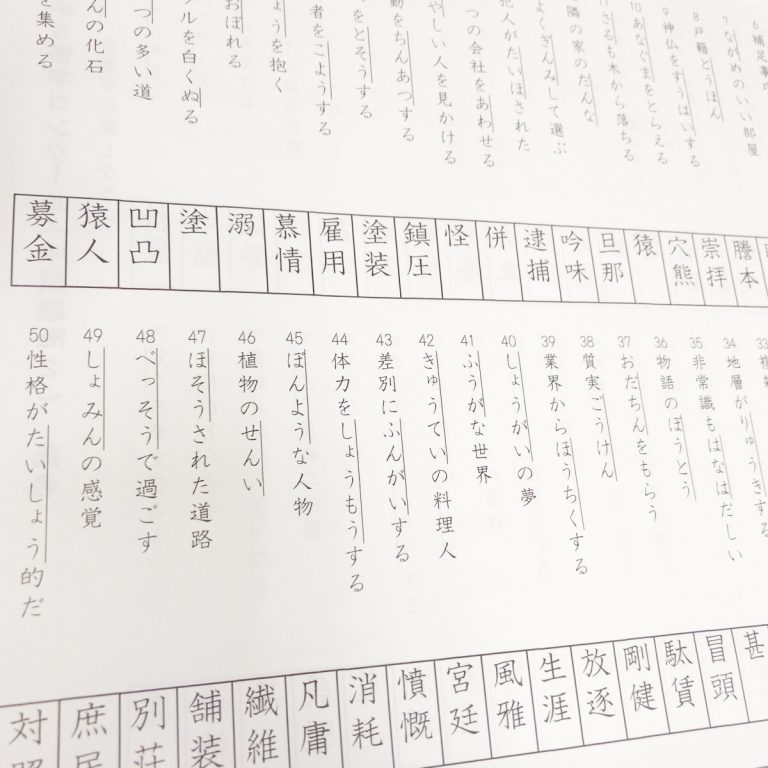 6 補足事
7 ながめのいい部屋
8 戸籍とうほん
9 神仏をすうはいする
10 あなぐまをとらえる
さるも木から落ちる
隣の家のだんな
よくぎんみして選ぶ
犯人がたいほされた
つの会社をあわせる
やしい人を見かける
動をちんあつする
をとそうする
者をこようする
ょうを抱く
おぼれる
ルを白くぬる
つの多い道
んの化石
を集める
謄本
崇拝
穴熊
猿
旦那
吟味
逮捕
併
怪
鎮圧
塗装
雇用
慕情
溺
塗
凹凸
猿人
募金
33
34 地層がりゅうきする
35 非常識もはなはだしい
36 物語のぼうとう
37 おだちんをもらう
38 質実ごうけん
39 業界からほうちくする
40 しょうがいの夢
41 ふうがな世界
42 きゅうていの料理人
43 差別にふんがいする
44 体力をしょうもうする
45 ぼんような人物
46 植物のせんい
47 ほそうされた道路
48 べっそうで過ごす
49 しょみんの感覚
50 性格がたいしょう的だ
甚
冒頭
駄賃
剛健
放逐
生涯
風雅
宮廷
憤慨
消耗
凡庸
繊維
舗装
別荘
庶民
対照